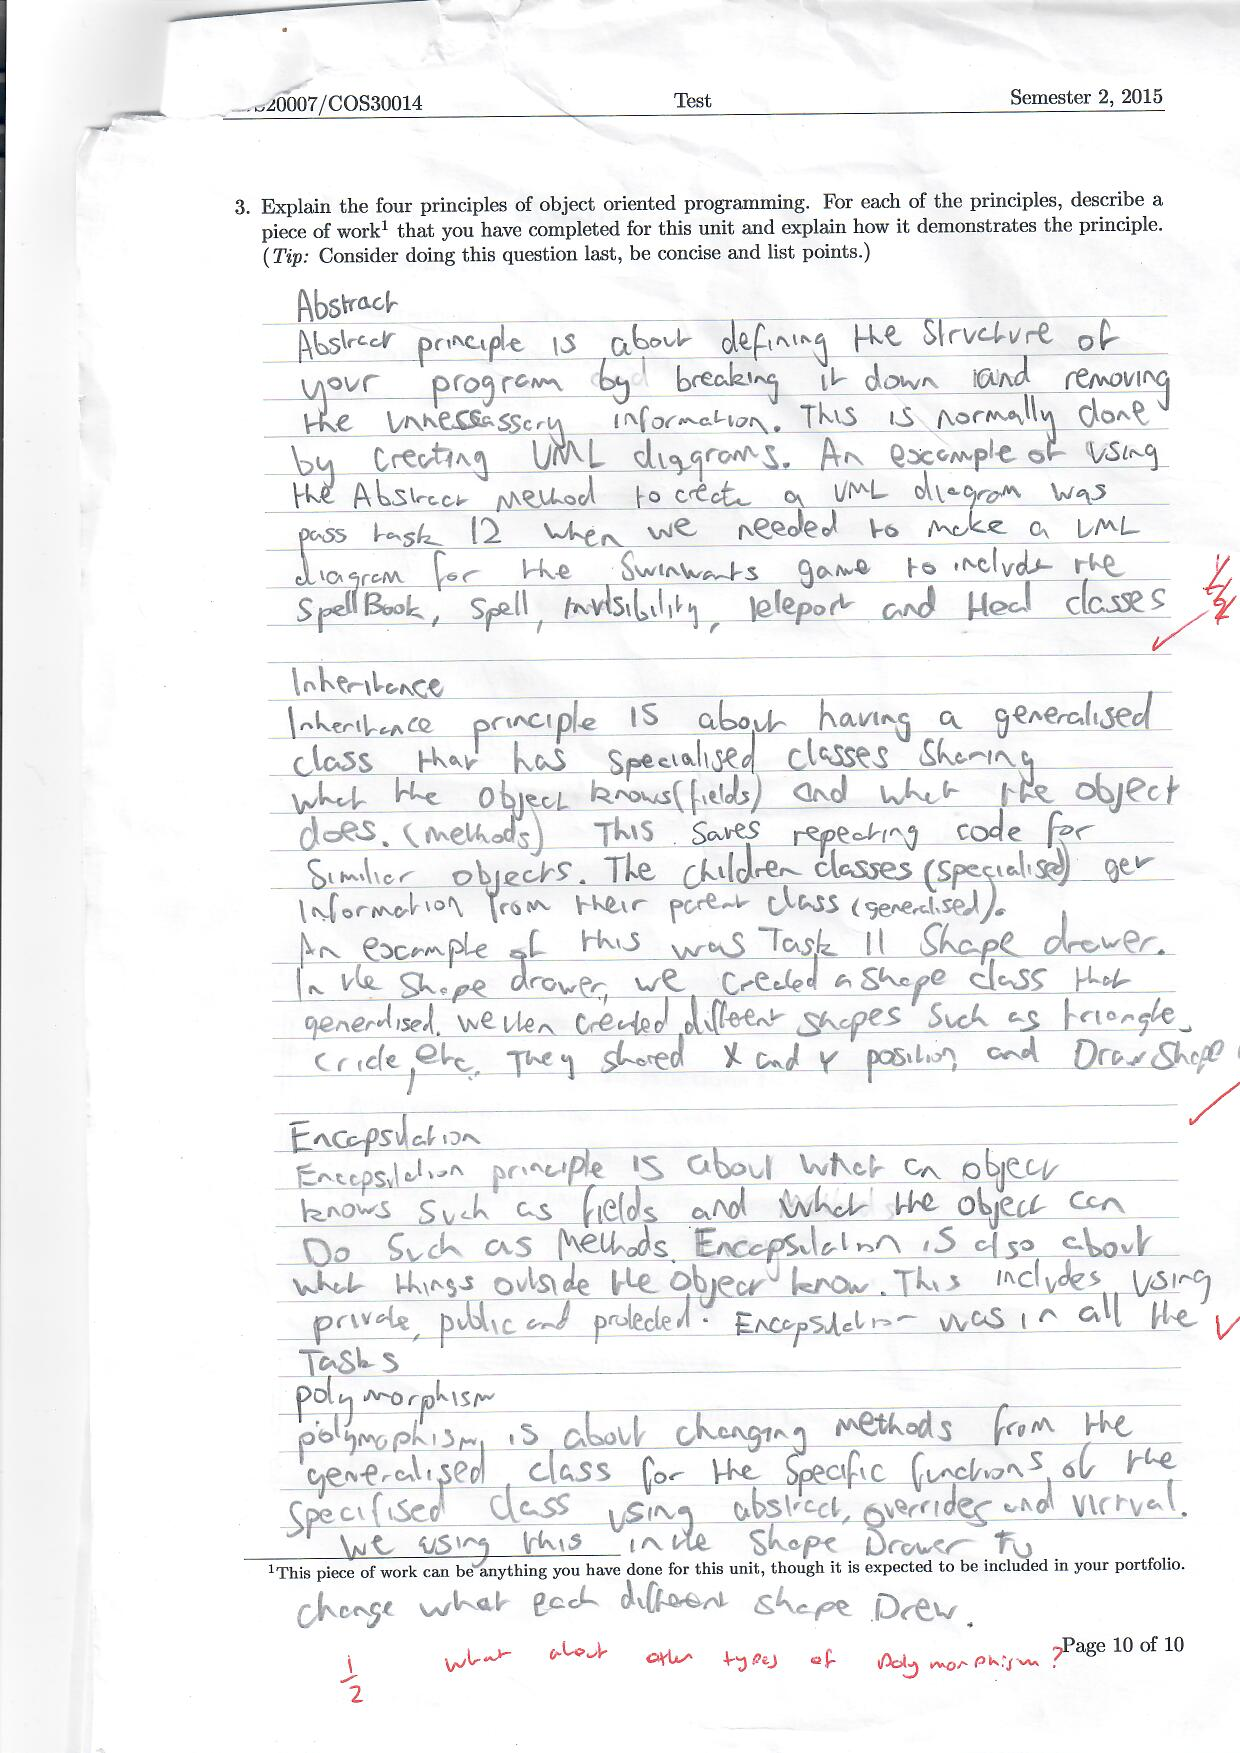 20007/COS30014 Test Semester 2, 2015
3. Explain the four principles of object oriented programming. For each of the principles, describe a
piece of work¹ that you have completed for this unit and explain how it demonstrates the principle.
(Tip: Consider doing this question last, be concise and list points.)
Abstract
Abstract principle is about defining the Structure of
your program by breaking it down and removing
the unnessassery information. This is normally done
by creating UML diagrams. An example of using
the Abstract Method to create a UML diagram was
pass task 12 when we needed to make a UML
diagram for the Swinwarts game to include the
SpellBook, Spell, invisibility, teleport and Heal classes
Inheritence
Inheritence principle is about having a generalised
class that has specialised classes sharing
what the object knows (fields) and what the object
does. (methods) This saves repeating code for
Similier objects. The children classes (specialised) get
information from their parent class (generalised).
An example of this was Task 11 Shape drawer.
In the Shape drawer, we created a shape class that
generalised. we then created different shapes such as triangle,
Cricle, etc. They shared X and Y position, and Draw Shape
Encapsulation
Encapsulation principle is about what an object
knows such as fields and what the object can
Do such as Methods. Encapsulation is also about
what things outside the object know. This includes using
private, public and protected. Encapsulation was in all the
Tasks
polymorphism
polymophism, is about changing methods from the
generalised class for the specific functions of the
specifised class using abstract, overrides and virtual.
We using this in the Shape Drawer to
¹This piece of work can be anything you have done for this unit, though it is expected to be included in your portfolio.
change what each different shape Drew.
Page 10 of 10
1/2 what about other types of polymorphism?